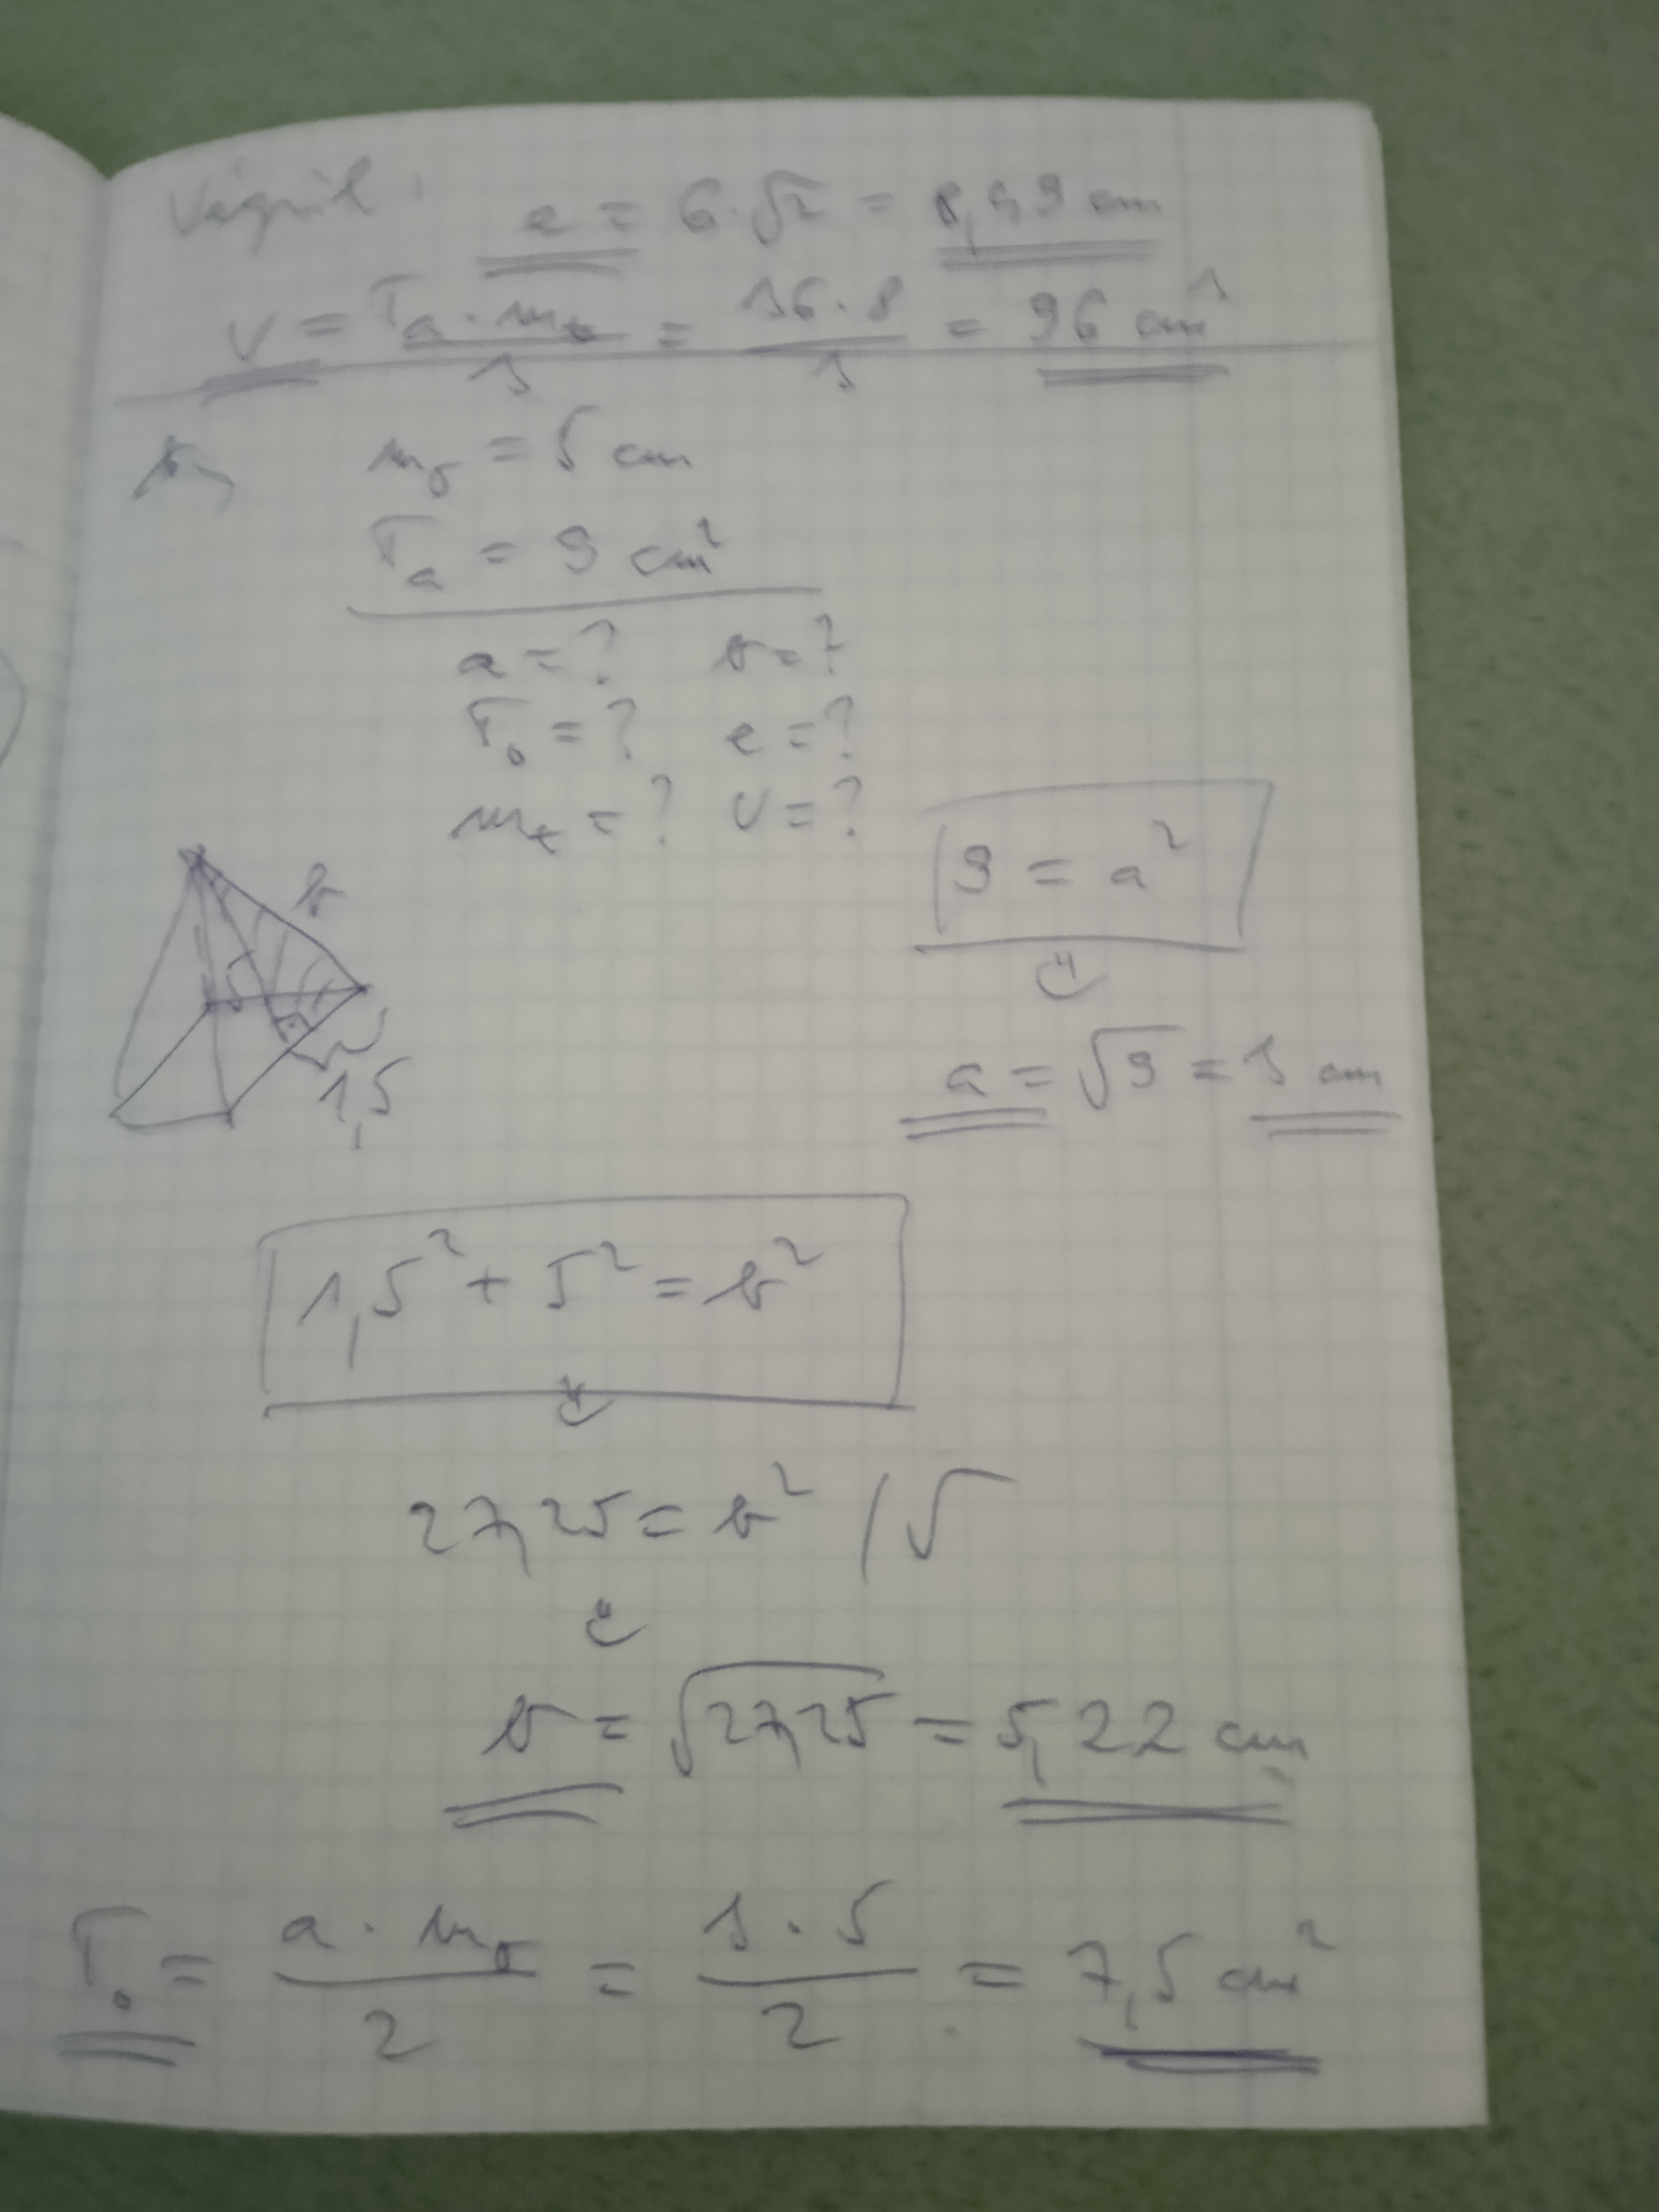 Végül: e = 6·√2 = 8,49 cm
V = Ta · mt / 3 = 36·8 / 3 = 96 cm³
b,
mo = 5 cm
Ta = 9 cm²
a = ? b = ?
To = ? e = ?
mt = ? V = ?
9 = a²
a = √9 = 3 cm
b
5
1,5
1,5² + 5² = b²
27,25 = b² /√
b = √27,25 = 5,22 cm
To = a · mo / 2 = 3 · 5 / 2 = 7,5 cm²